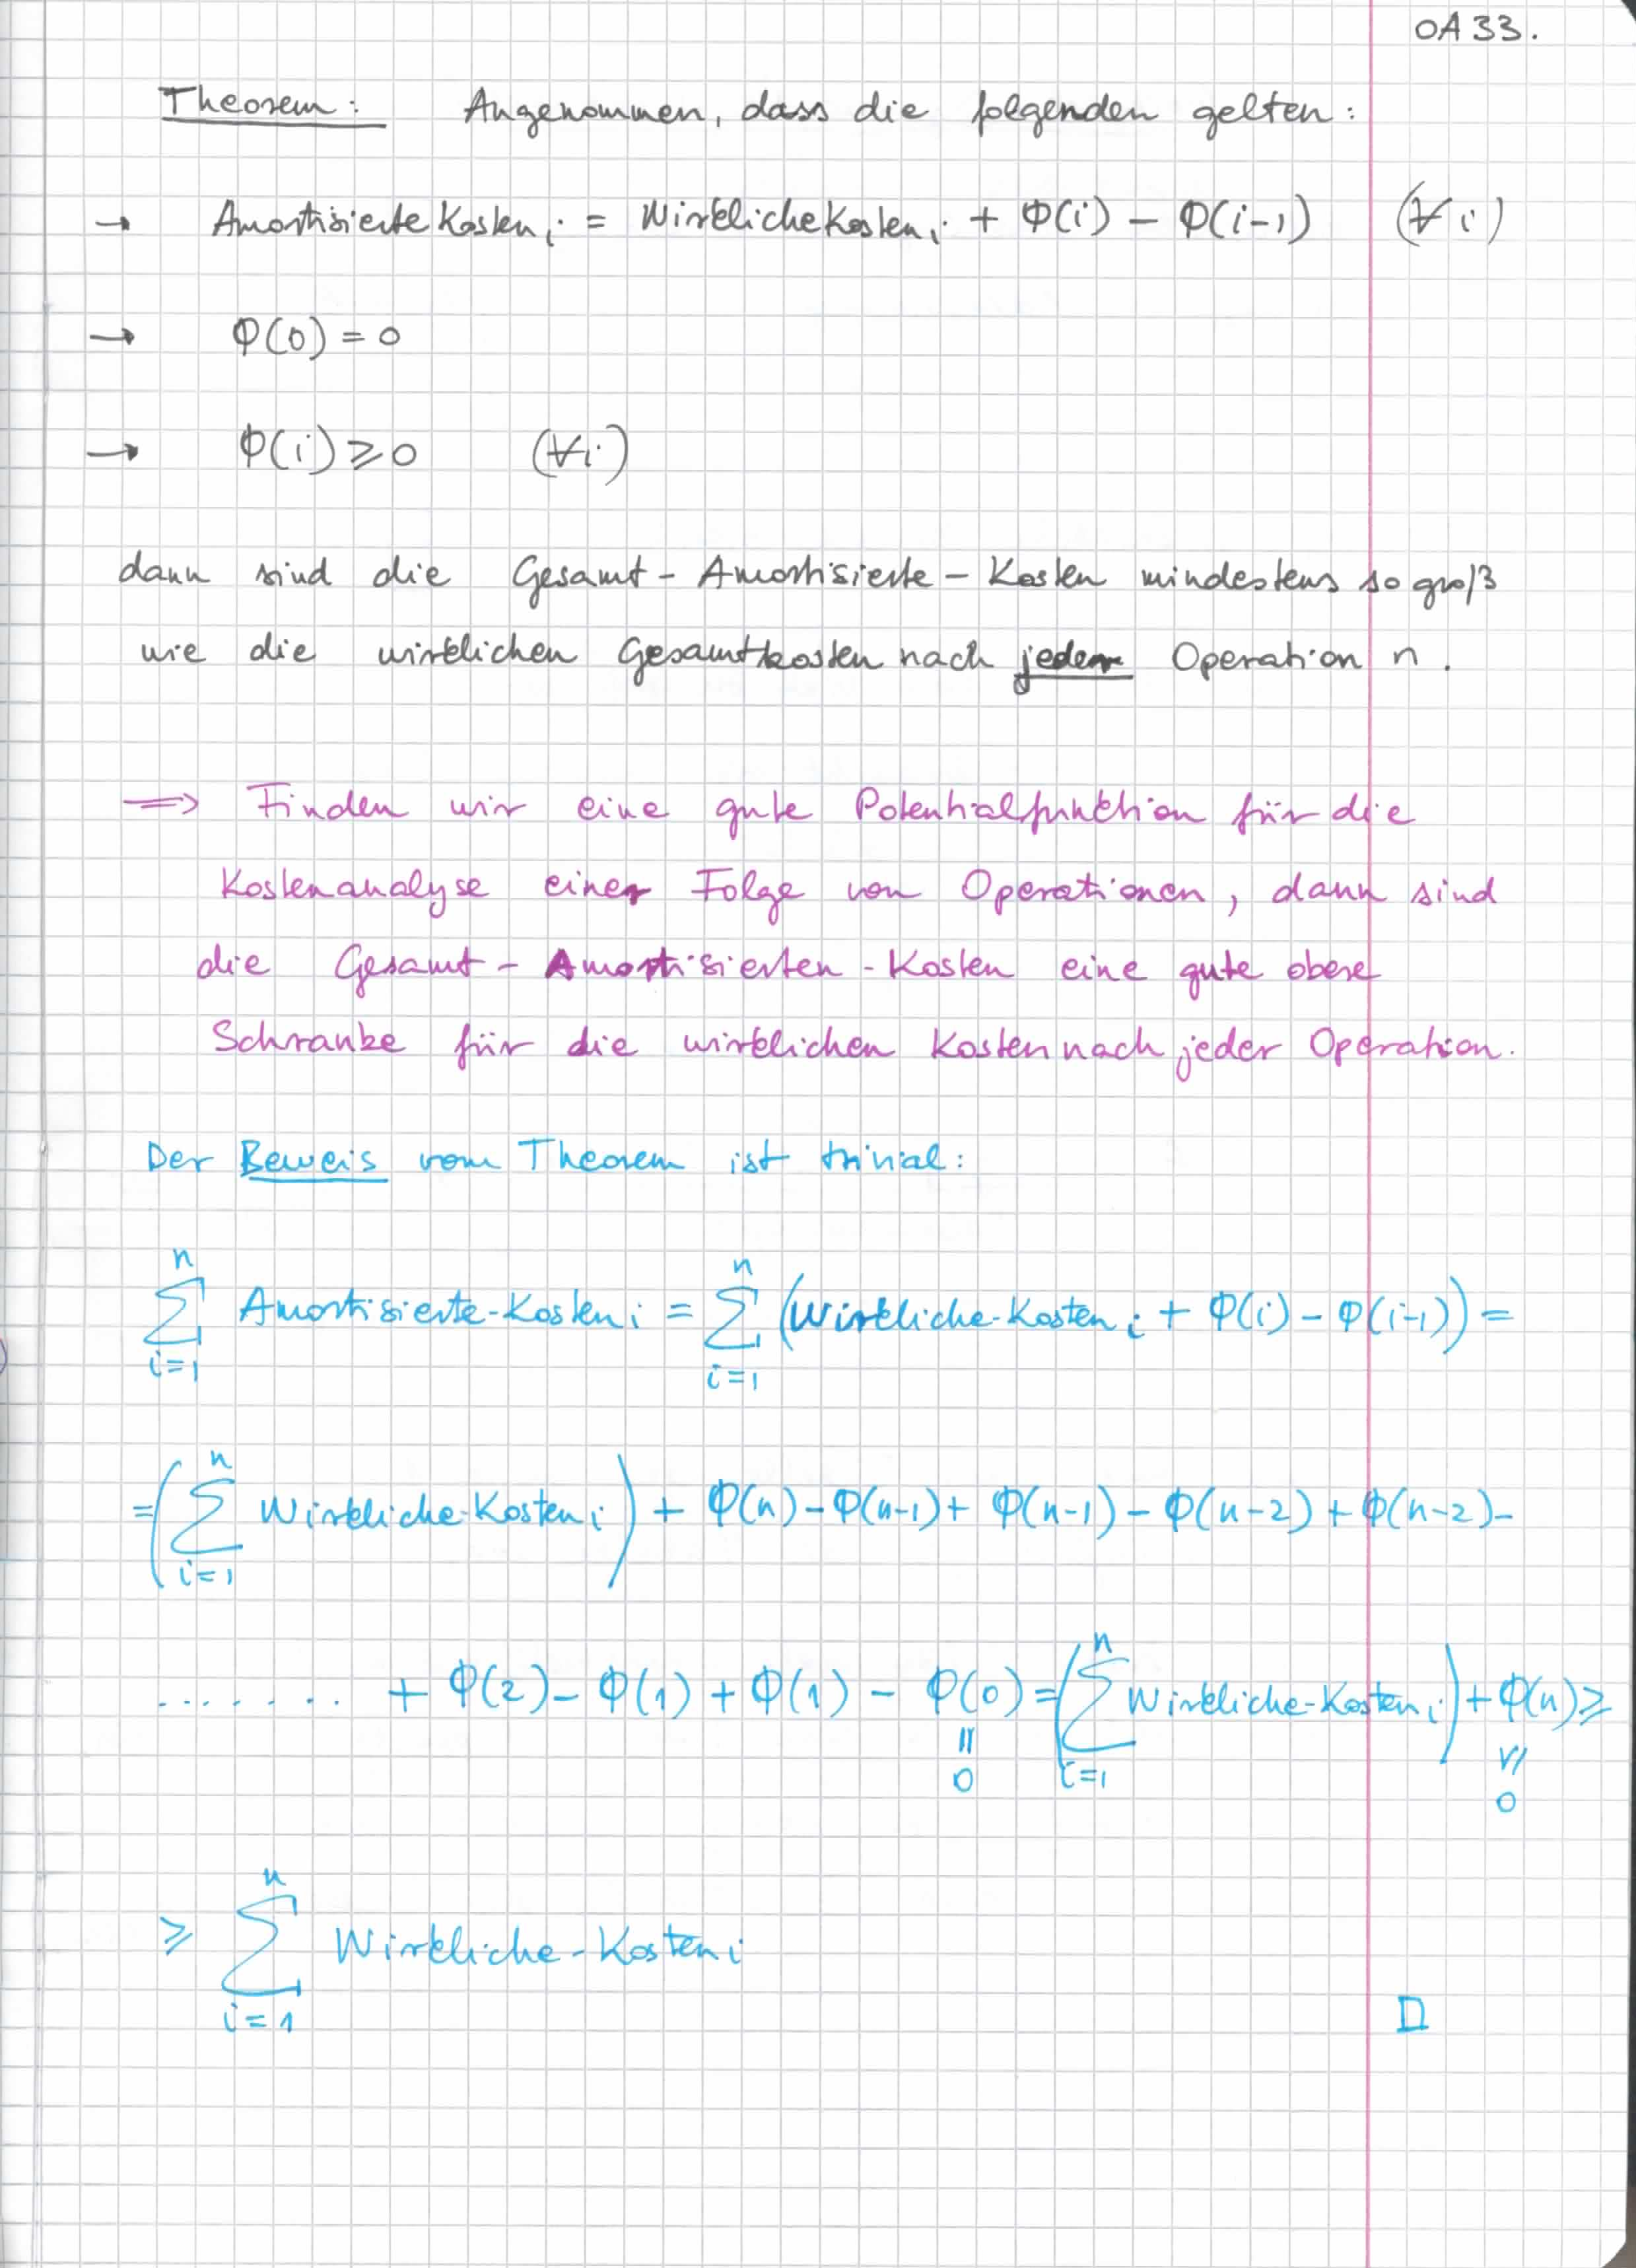 OA 33.
Theorem: Angenommen, dass die folgenden gelten:
→ AmortisierteKosten_i = WirklicheKosten_i + Φ(i) − Φ(i−1) (∀i)
→ Φ(0) = 0
→ Φ(i) ⩾ 0 (∀i)
dann sind die Gesamt-Amortisierte-Kosten mindestens so groß
wie die wirklichen Gesamtkosten nach jeder Operation n.
⟹ Finden wir eine gute Potentialfunktion für die
Kostenanalyse einer Folge von Operationen, dann sind
die Gesamt-Amortisierten-Kosten eine gute obere
Schranke für die wirklichen Kosten nach jeder Operation.
Der Beweis vom Theorem ist trivial:
∑_{i=1}^{n} Amortisierte-Kosten_i = ∑_{i=1}^{n} (Wirkliche-Kosten_i + Φ(i) − Φ(i−1)) =
= (∑_{i=1}^{n} Wirkliche-Kosten_i) + Φ(n) − Φ(n−1) + Φ(n−1) − Φ(n−2) + Φ(n−2) −
........ + Φ(2) − Φ(1) + Φ(1) − Φ(0) = (∑_{i=1}^{n} Wirkliche-Kosten_i) + Φ(n) ⩾
|| V/
0 0
⩾ ∑_{i=1}^{n} Wirkliche-Kosten_i
□